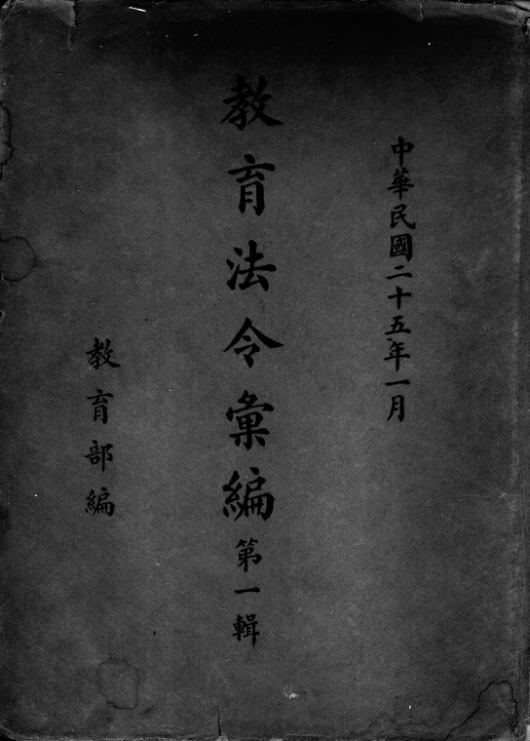 中華民國二十五年一月
教育法令彙編第一輯
教育部編